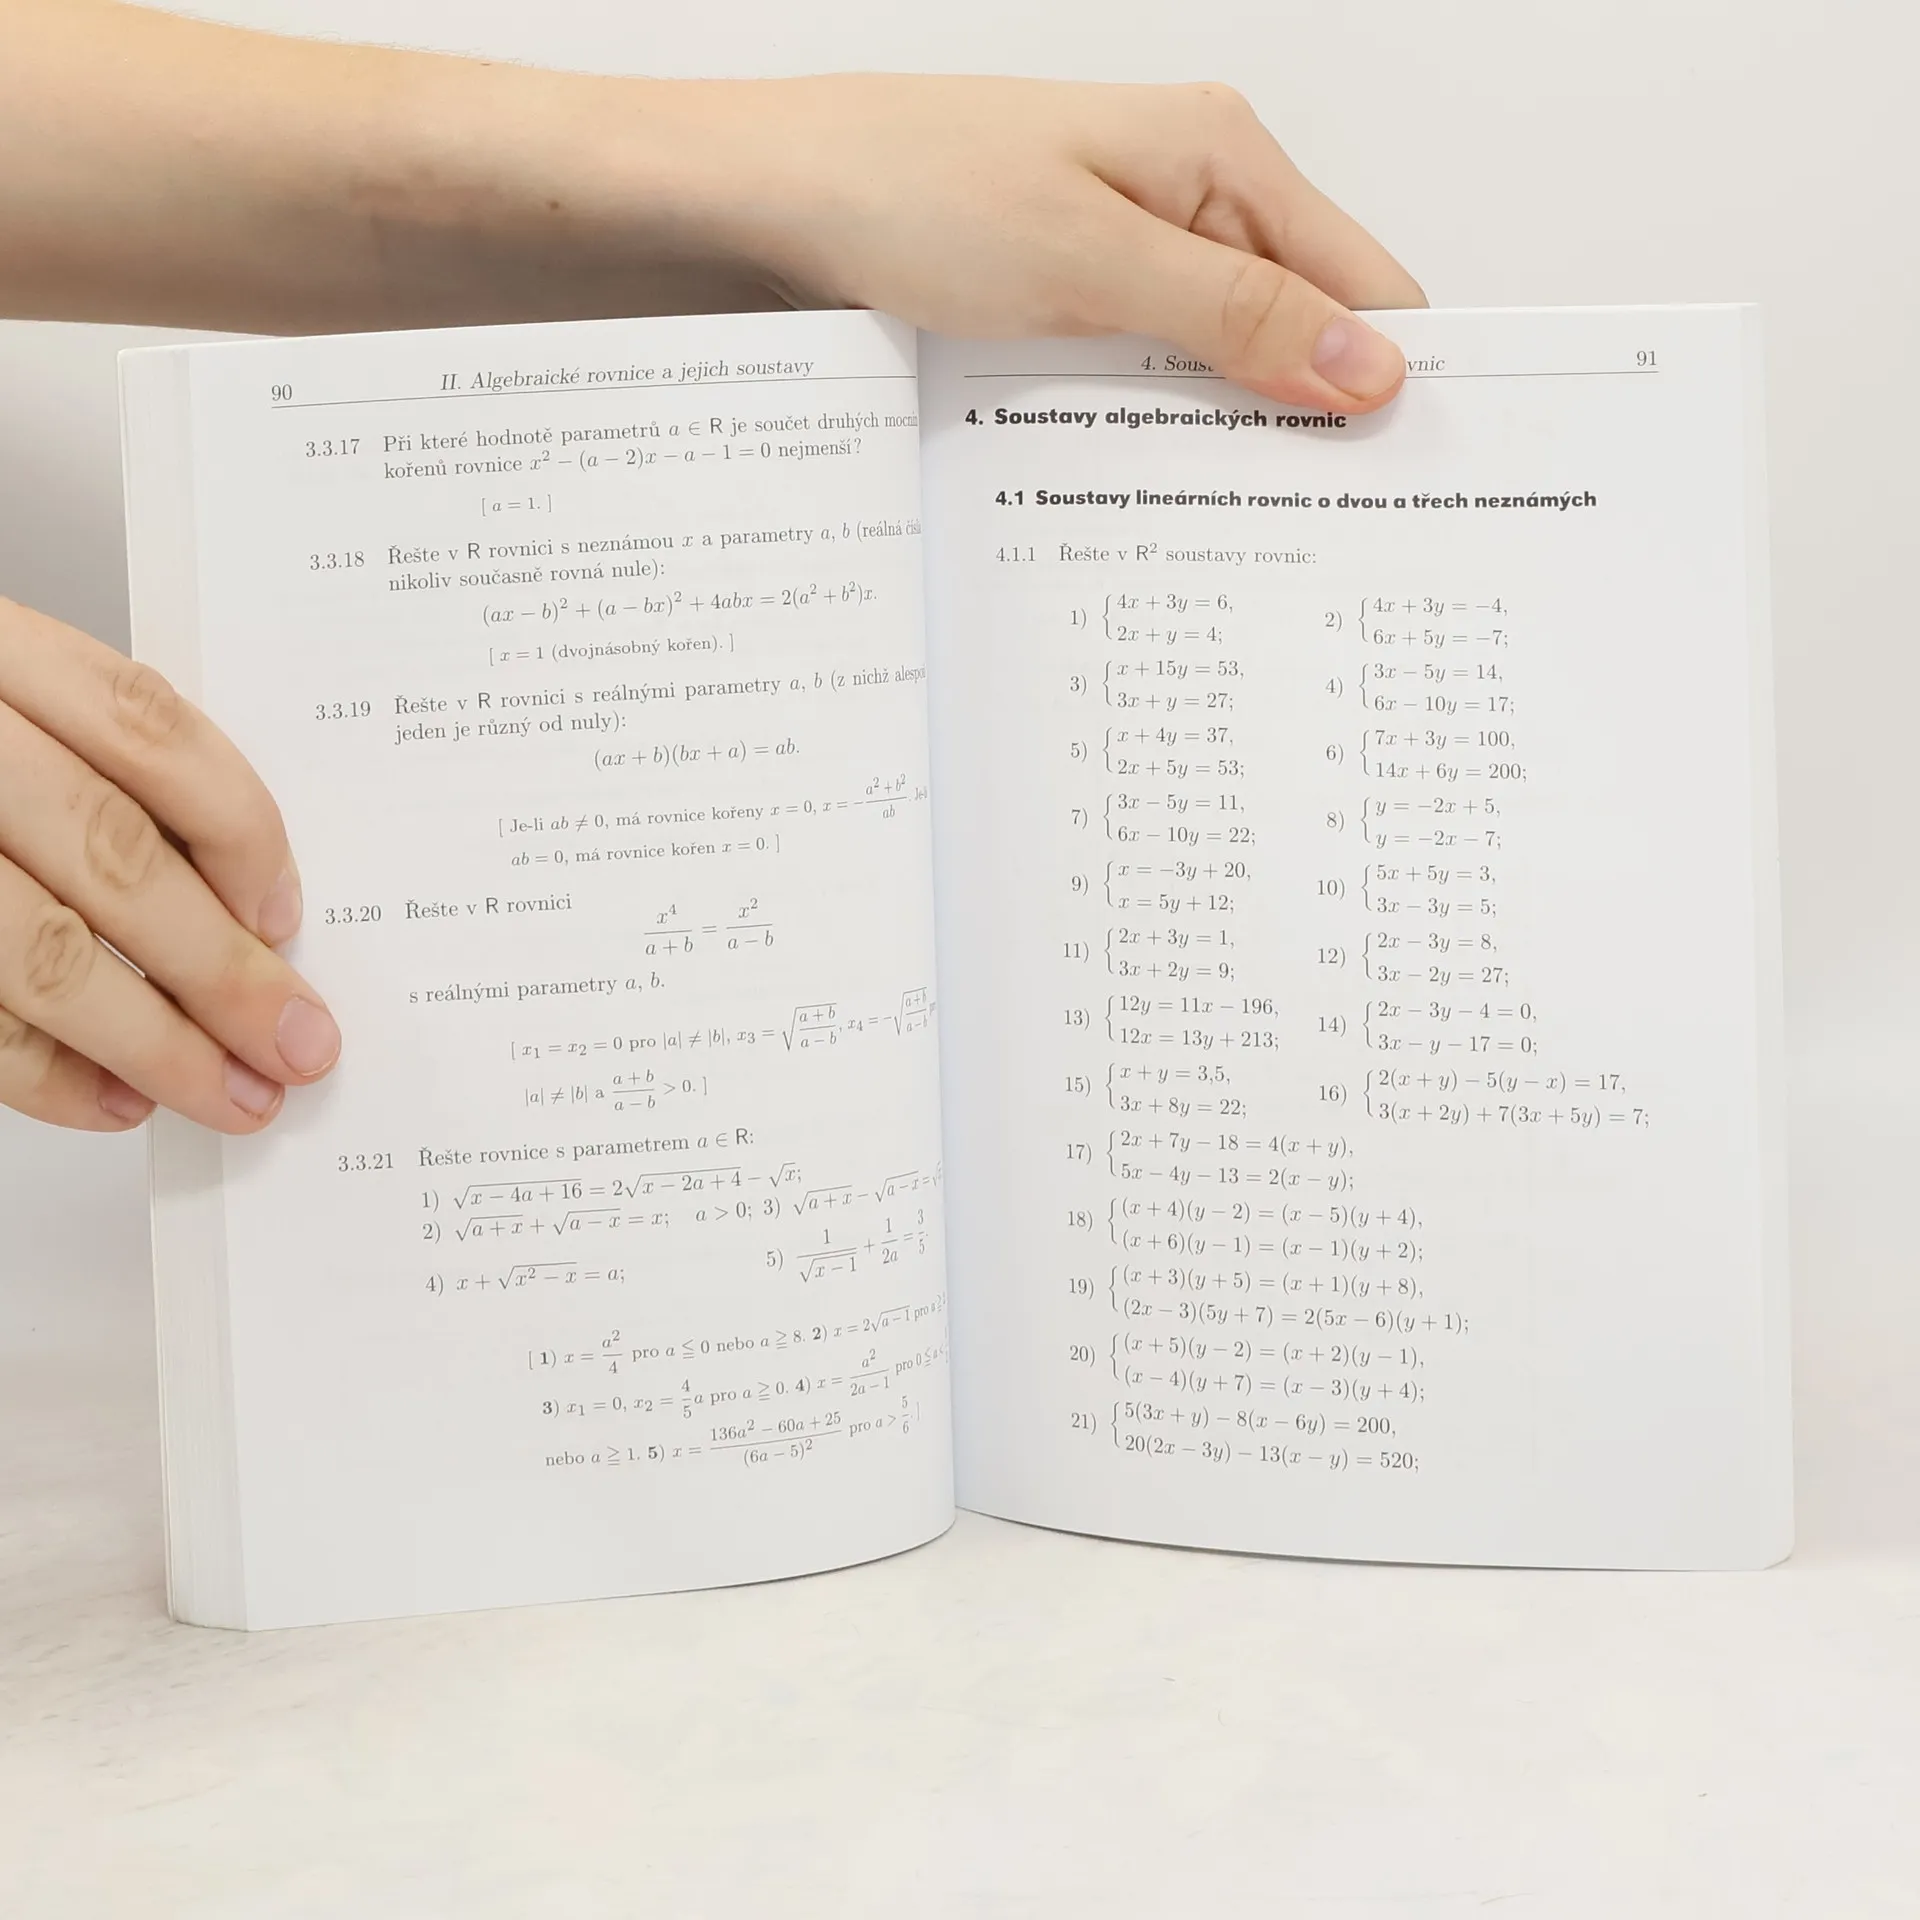 90
II. Algebraické rovnice a jejich soustavy
3.3.17 Při které hodnotě parametrů a ∈ R je součet druhých
kořenů rovnice x² − (a − 2)x − a − 1 = 0 nejmenší?
[ a = 1. ]
3.3.18 Řešte v R rovnici s neznámou x a parametry a, b (reálná
nikoliv současně rovná nule):
(ax − b)² + (a − bx)² + 4abx = 2(a² + b²)x.
[ x = 1 (dvojnásobný kořen). ]
3.3.19 Řešte v R rovnici s reálnými parametry a, b (z nichž
jeden je různý od nuly):
(ax + b)(bx + a) = ab.
[ Je-li ab ≠ 0, má rovnice kořeny x = 0, x = −(a² + b²)/ab.
ab = 0, má rovnice kořen x = 0. ]
3.3.20 Řešte v R rovnici
x⁴/(a + b) = x²/(a − b)
s reálnými parametry a, b.
[ x₁ = x₂ = 0 pro |a| ≠ |b|, x₃ = √((a + b)/(a − b)), x₄ = −√((a+b)/(a−b))
|a| ≠ |b| a (a + b)/(a − b) > 0. ]
3.3.21 Řešte rovnice s parametrem a ∈ R:
1) √(x − 4a + 16) = 2√(x − 2a + 4) − √x;
2) √(a + x) + √(a − x) = x; a > 0; 3) √(a + x) − √(a − x) =
4) x + √(x² − x) = a;
5) 1/√(x − 1) + 1/2a = 3/5.
[ 1) x = a²/4 pro a ≦ 0 nebo a ≧ 8. 2) x = 2√(a − 1) pro a ≧
3) x₁ = 0, x₂ = 4/5 a pro a ≧ 0. 4) x = a²/(2a − 1) pro 0 ≦ a <
nebo a ≧ 1. 5) x = (136a² − 60a + 25)/(6a − 5)² pro a > 5/6. ]
4.
vnic
91
4. Soustavy algebraických rovnic
4.1 Soustavy lineárních rovnic o dvou a třech neznámých
4.1.1 Řešte v R² soustavy rovnic:
1) { 4x + 3y = 6,
2x + y = 4;
2) { 4x + 3y = −4,
6x + 5y = −7;
3) { x + 15y = 53,
3x + y = 27;
4) { 3x − 5y = 14,
6x − 10y = 17;
5) { x + 4y = 37,
2x + 5y = 53;
6) { 7x + 3y = 100,
14x + 6y = 200;
7) { 3x − 5y = 11,
6x − 10y = 22;
8) { y = −2x + 5,
y = −2x − 7;
9) { x = −3y + 20,
x = 5y + 12;
10) { 5x + 5y = 3,
3x − 3y = 5;
11) { 2x + 3y = 1,
3x + 2y = 9;
12) { 2x − 3y = 8,
3x − 2y = 27;
13) { 12y = 11x − 196,
12x = 13y + 213;
14) { 2x − 3y − 4 = 0,
3x − y − 17 = 0;
15) { x + y = 3,5,
3x + 8y = 22;
16) { 2(x + y) − 5(y − x) = 17,
3(x + 2y) + 7(3x + 5y) = 7;
17) { 2x + 7y − 18 = 4(x + y),
5x − 4y − 13 = 2(x − y);
18) { (x + 4)(y − 2) = (x − 5)(y + 4),
(x + 6)(y − 1) = (x − 1)(y + 2);
19) { (x + 3)(y + 5) = (x + 1)(y + 8),
(2x − 3)(5y + 7) = 2(5x − 6)(y + 1);
20) { (x + 5)(y − 2) = (x + 2)(y − 1),
(x − 4)(y + 7) = (x − 3)(y + 4);
21) { 5(3x + y) − 8(x − 6y) = 200,
20(2x − 3y) − 13(x − y) = 520;